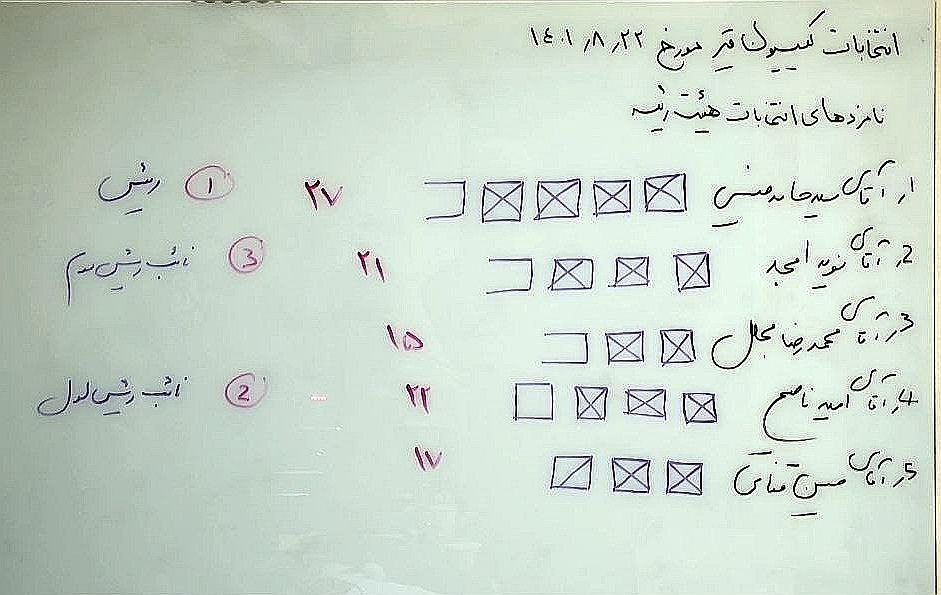 انتخابات کمیسیون قیر مورخ ۱۴۰۱٫۸٫۲۲
نامزدهای انتخابات هیئت رئیسه
۱٫ آقای سید حامد حسنی ۲۷ ۱ رئیس
2٫ آقای نوید امجد ۲۱ 3 نائب رئیس دوم
3٫ آقای محمدرضا مجلل ۱۵
4٫ آقای امید ناصح ۲۲ 2 نائب رئیس اول
5٫ آقای حسن ۱۷